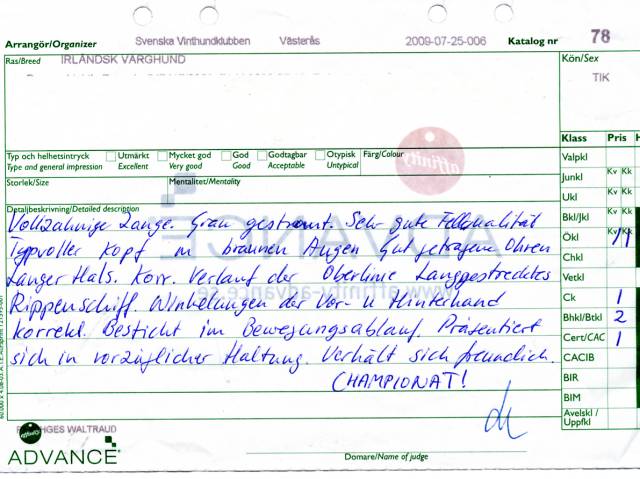 Arrangör/Organizer Svenska Vinthundklubben Västerås 2009-07-25-006 Katalog nr 78
Ras/Breed IRLÄNDSK VARGHUND Kön/Sex
TIK
Klass Pris
Typ och helhetsintryck Utmärkt Mycket god God Godtagbar Otypisk Färg/Colour
Type and general impression Excellent Very good Good Acceptable Untypical
Storlek/Size Mentalitet/Mentality
Detaljbeskrivning/Detailed description
Vollzahnige Zange. Grau gestromt. Sehr gute Fellqualität
Typvoller Kopf m braunen Augen Gut getragene Ohren
Langer Hals. Korr. Verlauf der Oberlinie Langgestrecktes
Rippenschiff. Winkelungen der Vor- u Hinterhand
korrekt. Besticht im Bewegungsablauf. Präsentiert
sich in vorzüglicher Haltung. Verhält sich freundlich.
CHAMPIONAT!
Valpkl
Junkl Kv Kk
Ukl Kv Kk
Bkl/Jkl Kv Kk
Ökl Kv Kk 1/1
Chkl
Vetkl
Ck 1
Bhkl/Btkl 2
Cert/CAC 1
CACIB
BIR
BIM
Avelskl /
Uppfkl
HGES WALTRAUD
affinity
ADVANCE
Domare/Name of judge
affinity
ADVANCE
www.affinity-advance